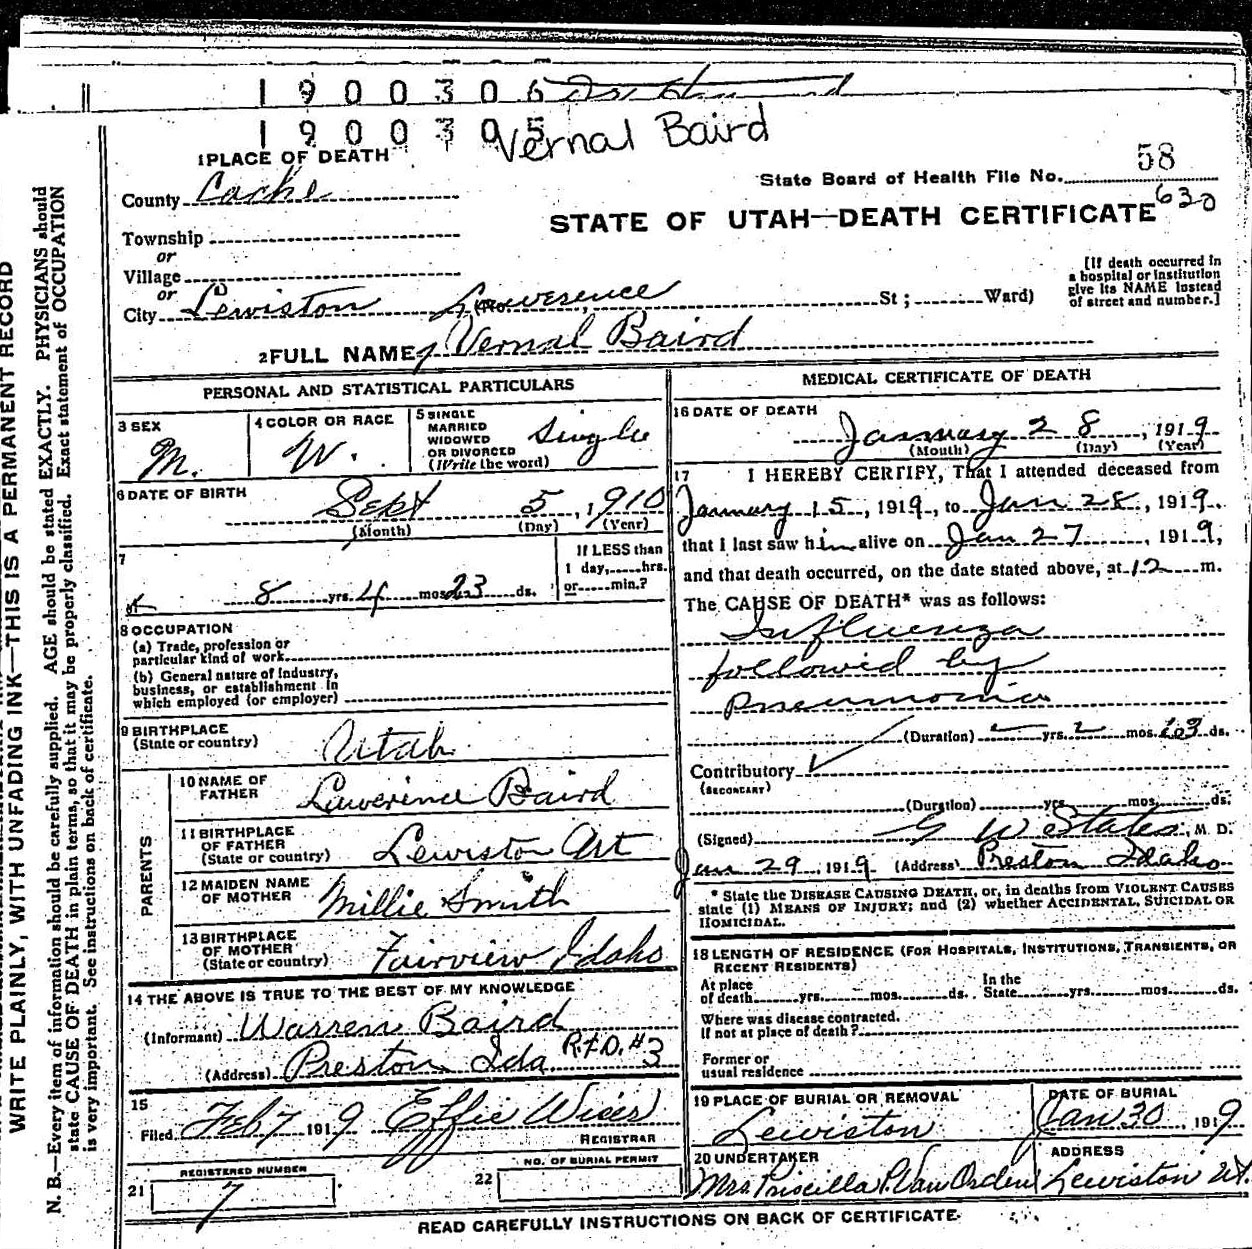 1900306
1900305
Vernal Baird
58
State Board of Health File No.
630
STATE OF UTAH—DEATH CERTIFICATE
1 PLACE OF DEATH
County Cache
Township
or
Village
or
City Lewiston (No. St; Ward)
[If death occurred in a hospital or institution give its NAME instead of street and number.]
Lawerence
2 FULL NAME Vernal Baird
PERSONAL AND STATISTICAL PARTICULARS
3 SEX
M.
4 COLOR OR RACE
W.
5 SINGLE MARRIED WIDOWED OR DIVORCED (Write the word)
Single
6 DATE OF BIRTH
Sept 5, 1910
(Month) (Day) (Year)
7
8 yrs. 4 mos. 23 ds.
If LESS than 1 day, hrs. or min.?
8 OCCUPATION
(a) Trade, profession or particular kind of work
(b) General nature of industry, business, or establishment in which employed (or employer)
9 BIRTHPLACE
(State or country)
Utah
PARENTS
10 NAME OF FATHER
Lawerence Baird
11 BIRTHPLACE OF FATHER
(State or country)
Lewiston
12 MAIDEN NAME OF MOTHER
Millie Smith
13 BIRTHPLACE OF MOTHER
(State or country)
Fairview Idaho
14 THE ABOVE IS TRUE TO THE BEST OF MY KNOWLEDGE
(Informant) Warren Baird
(Address) Preston Ida R.F.D. #3
15
Filed Feb 7 1919 Effie
REGISTRAR
21 REGISTERED NUMBER
7
22 NO. OF BURIAL PERMIT
MEDICAL CERTIFICATE OF DEATH
16 DATE OF DEATH
January 28, 1919
(Month) (Day) (Year)
17 I HEREBY CERTIFY, That I attended deceased from
January 15, 1919, to Jan 28, 1919,
that I last saw him alive on Jan 27, 1919,
and that death occurred, on the date stated above, at 12 m.
The CAUSE OF DEATH* was as follows:
Influenza
followed by
pneumonia
(Duration) yrs. mos. ds.
Contributory
(SECONDARY)
(Duration) yrs. mos. ds.
(Signed) G W States, M. D.
Jan 29, 1919 (Address) Preston Idaho
* State the DISEASE CAUSING DEATH, or, in deaths from VIOLENT CAUSES
state (1) MEANS OF INJURY; and (2) whether ACCIDENTAL, SUICIDAL OR
HOMICIDAL.
18 LENGTH OF RESIDENCE (FOR HOSPITALS, INSTITUTIONS, TRANSIENTS, OR
RECENT RESIDENTS)
At place of death yrs. mos. ds. In the State yrs. mos. ds.
Where was disease contracted.
If not at place of death?
Former or
usual residence
19 PLACE OF BURIAL OR REMOVAL
Lewiston
DATE OF BURIAL
Jan 30, 1919
20 UNDERTAKER
Mrs Priscilla P Van Orden
ADDRESS
Lewiston Ut.
READ CAREFULLY INSTRUCTIONS ON BACK OF CERTIFICATE
WRITE PLAINLY, WITH UNFADING INK—THIS IS A PERMANENT RECORD
N. B.—Every item of information should be carefully supplied. AGE should be stated EXACTLY. PHYSICIANS should
state CAUSE OF DEATH in plain terms, so that it may be properly classified. Exact statement of OCCUPATION
is very important. See instructions on back of certificate.